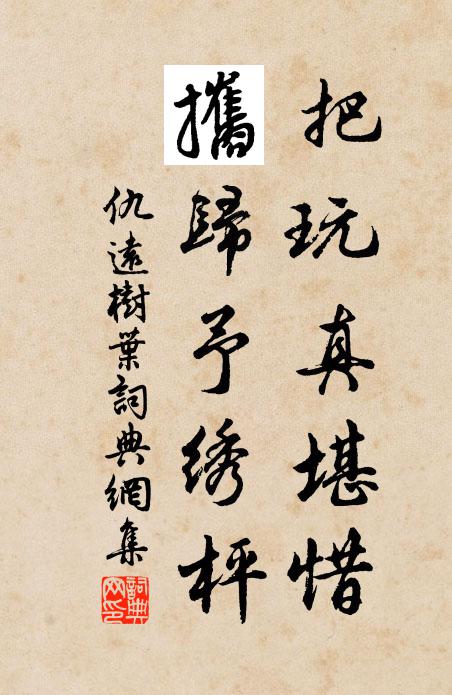 把玩真堪惜
攜歸予绣枰
仇遠樹葉詞典網集
詞典網印